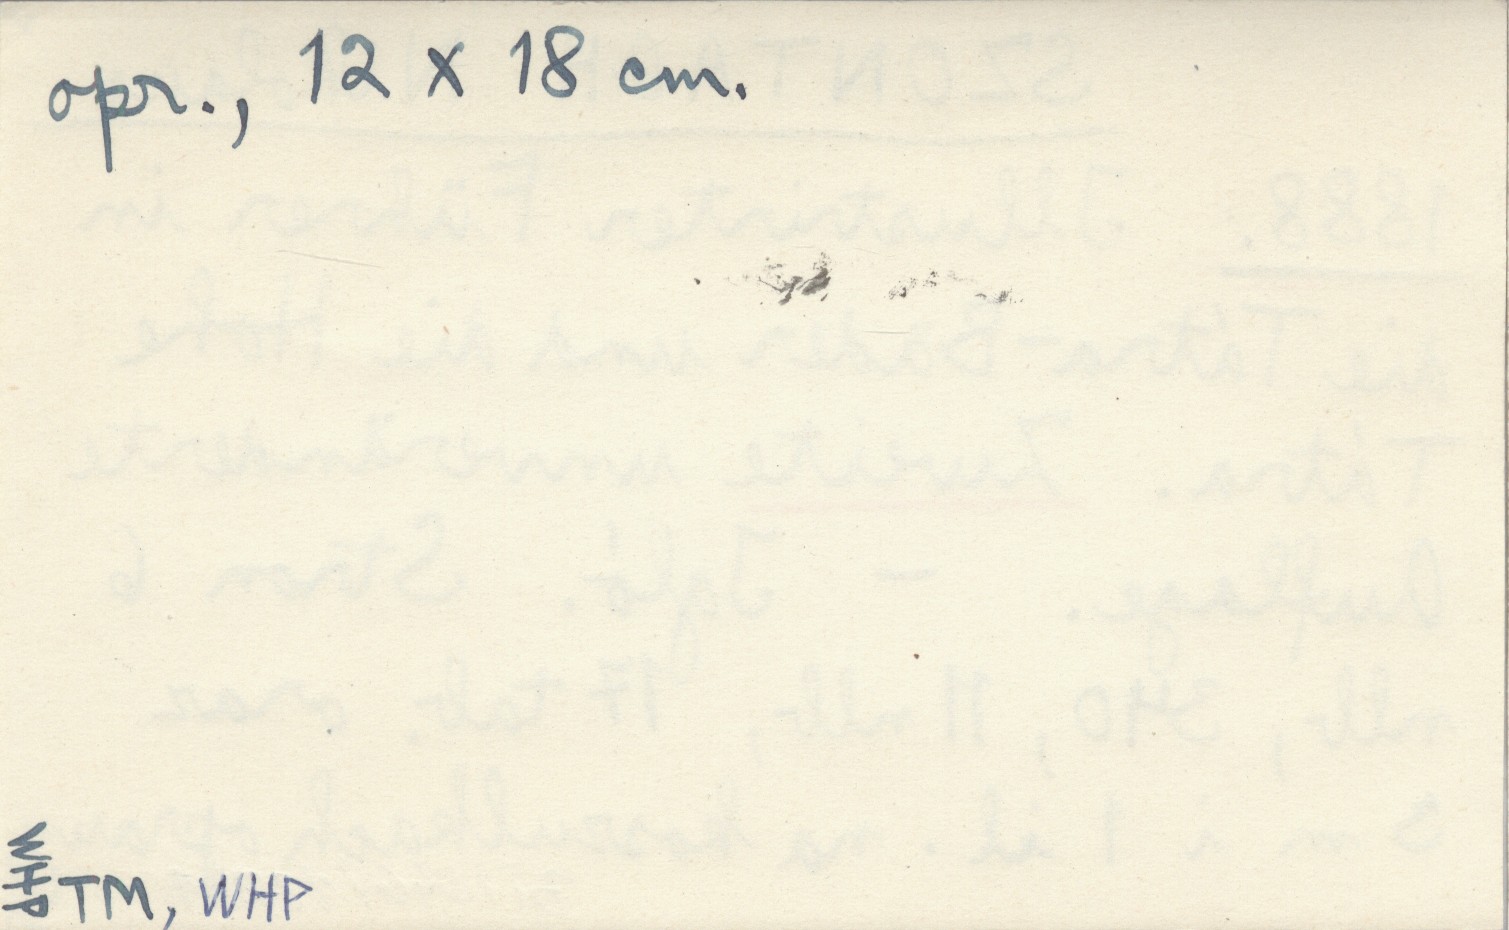 opr., 12 x 18 cm.
WHP
TM, WHP